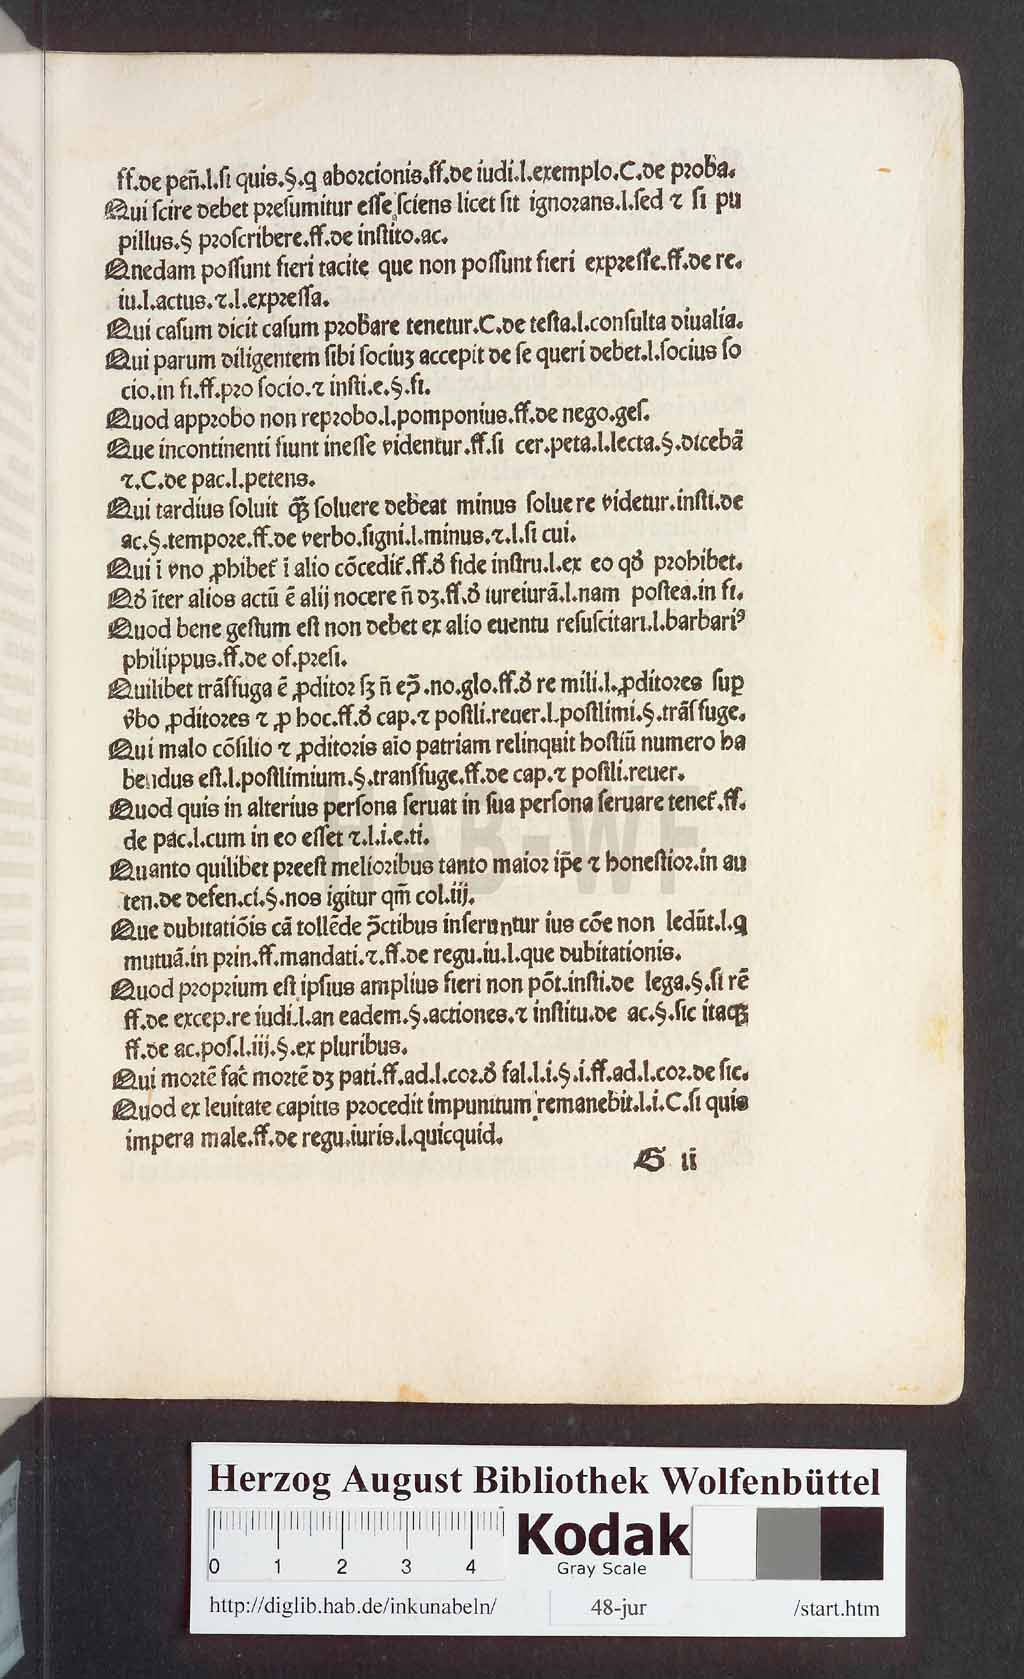 ff.de peñ.l.ſi quis.§.q aborcionis.ff.de iudi.l.exemplo.C.de proba.
Qui ſcire debet preſumitur eſſe ſciens licet ſit ignorans.l.ſed ⁊ ſi pu
pillus.§ proſcribere.ff.de inſtito.ac.
Qnedam poſſunt fieri tacite que non poſſunt fieri expreſſe.ff.de re.
iu.l.actus.⁊.l.expreſſa.
Qui caſum dicit caſum probare tenetur.C.de teſta.l.conſulta diualia.
Qui parum diligentem ſibi ſociuꝫ accepit de ſe queri debet.l.ſocius ſo
cio.in fi.ff.pro ſocio.⁊ inſti.e.§.fi.
Quod approbo non reprobo.l.pomponius.ff.de nego.geſ.
Que incontinenti fiunt ineſſe videntur.ff.ſi cer.peta.l.lecta.§.dicebã
⁊.C.de pac.l.petens.
Qui tardius ſoluit qꝫ̃ ſoluere debeat minus ſolue re videtur.inſti.de
ac.§.tempore.ff.de verbo.ſigni.l.minus.⁊.l.ſi cui.
Qui ĩ vno ꝓhibet̃ ĩ alio cõcedit̃.ff.d̓ fide inſtru.l.ex eo qd̓ prohibet.
Qd̓ ĩter alios actũ ẽ alij nocere ñ dꝫ.ff.d̓ iureiurã.l.nam poſtea.in fi.
Quod bene geſtum eſt non debet ex alio euentu reſuſcitari.l.barbariꝰ
philippus.ff.de of.preſi.
Quilibet trãſfuga ẽ ꝓditor ſꝫ ñ eꝯ̃.no.glo.ff.d̓ re mili.l.ꝓditores ſuꝑ
v̓bo ꝓditores ⁊ ꝓ hoc.ff.d̓ cap.⁊ poſtli.reuer.l.poſtlimi.§.trãſfuge.
Qui malo cõſilio ⁊ ꝓditoris aĩo patriam relinquit hoſtiũ numero ha
bendus eſt.l.poſtlimium.§.tranſfuge.ff.de cap.⁊ poſtli.reuer.
Quod quis in alterius perſona ſeruat in ſua perſona ſeruare tenet̃.ff.
de pac.l.cum in eo eſſet ⁊.l.i.e.ti.
Quanto quilibet preeſt melioribus tanto maior ip̃e ⁊ honeſtior.in au
ten.de defen.ci.§.nos igitur qm̃ col.iij.
Que dubitatiõis cã tollẽde ꝯ̃ctibus inſeruntur ius cõe non ledũt.l.q
mutuã.in prin.ff.mandati.⁊.ff.de regu.iu.l.que dubitationis.
Quod proprium eſt ipſius amplius fieri non põt.inſti.de lega.§.ſi rẽ
ff.de excep.re iudi.l.an eadem.§.actiones.⁊ inſtitu.de ac.§.ſic itaqꝫ
ff.de ac.poſ.l.iij.§.ex pluribus.
Qui mortẽ fac̃ mortẽ dꝫ pati.ff.ad.l.cor.d̓ fal.l.i.§.i.ff.ad.l.cor.de ſic.
Quod ex leuitate capitis procedit impunitum remanebit.l.i.C.ſi quis
impera male.ff.de regu.iuris.l.quicquid.
G ii
HAB-WF
Herzog August Bibliothek Wolfenbüttel
0 1 2 3 4
Kodak
Gray Scale
http://diglib.hab.de/inkunabeln/ 48-jur /start.htm